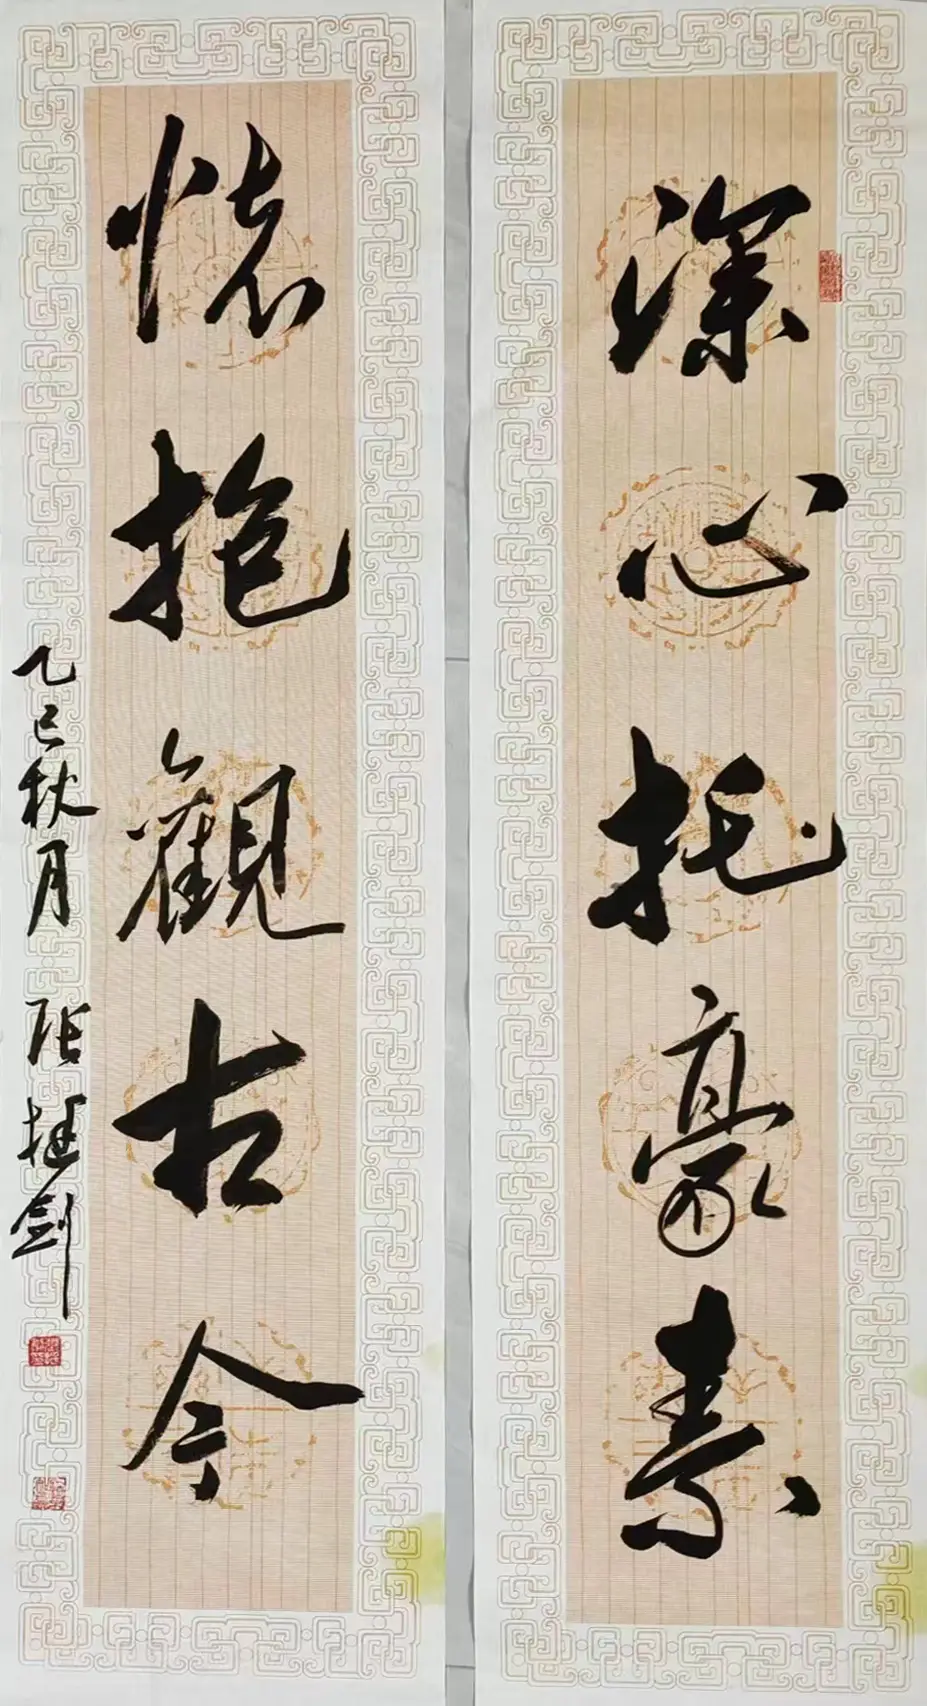 深心托豪素
懷抱觀古今
乙巳秋月 張極劍